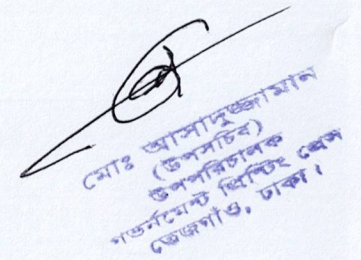 মোঃ আসাদুজ্জামান
(উপসচিব)
উপপরিচালক
গভর্নমেন্ট প্রিন্টিং প্রেস
তেজগাঁও, ঢাকা।